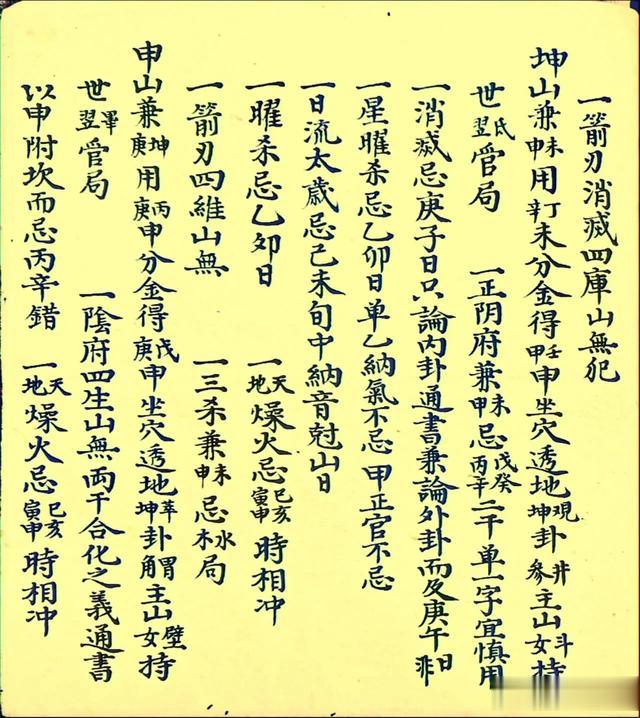 一箭刃消滅四庫山無犯
坤山兼未申用丁辛未分金得壬甲申坐穴透地觀坤卦井參主山斗女持
世氐翌管局 一正阴府兼未申忌戊癸丙辛二干单一字宜慎用
一消滅忌庚子日只論内卦通書兼論外卦而及庚午日非
一星曜杀忌乙卯日单乙納氣不忌 甲正官不忌
一日流太歲忌己未旬中納音尅山日
一曜杀忌乙卯日 一天地燥火忌巳亥寅申時相冲
一箭刃四維山無 一三杀兼未申忌水木局
申山兼坤庚用丙庚申分金得戊庚申坐穴透地萃坤卦胃觜主山壁女持
世畢翌管局 一陰府四生山無両干合化之義通書
以申附坎而忌丙辛錯 一天地燥火忌巳亥寅申時相冲